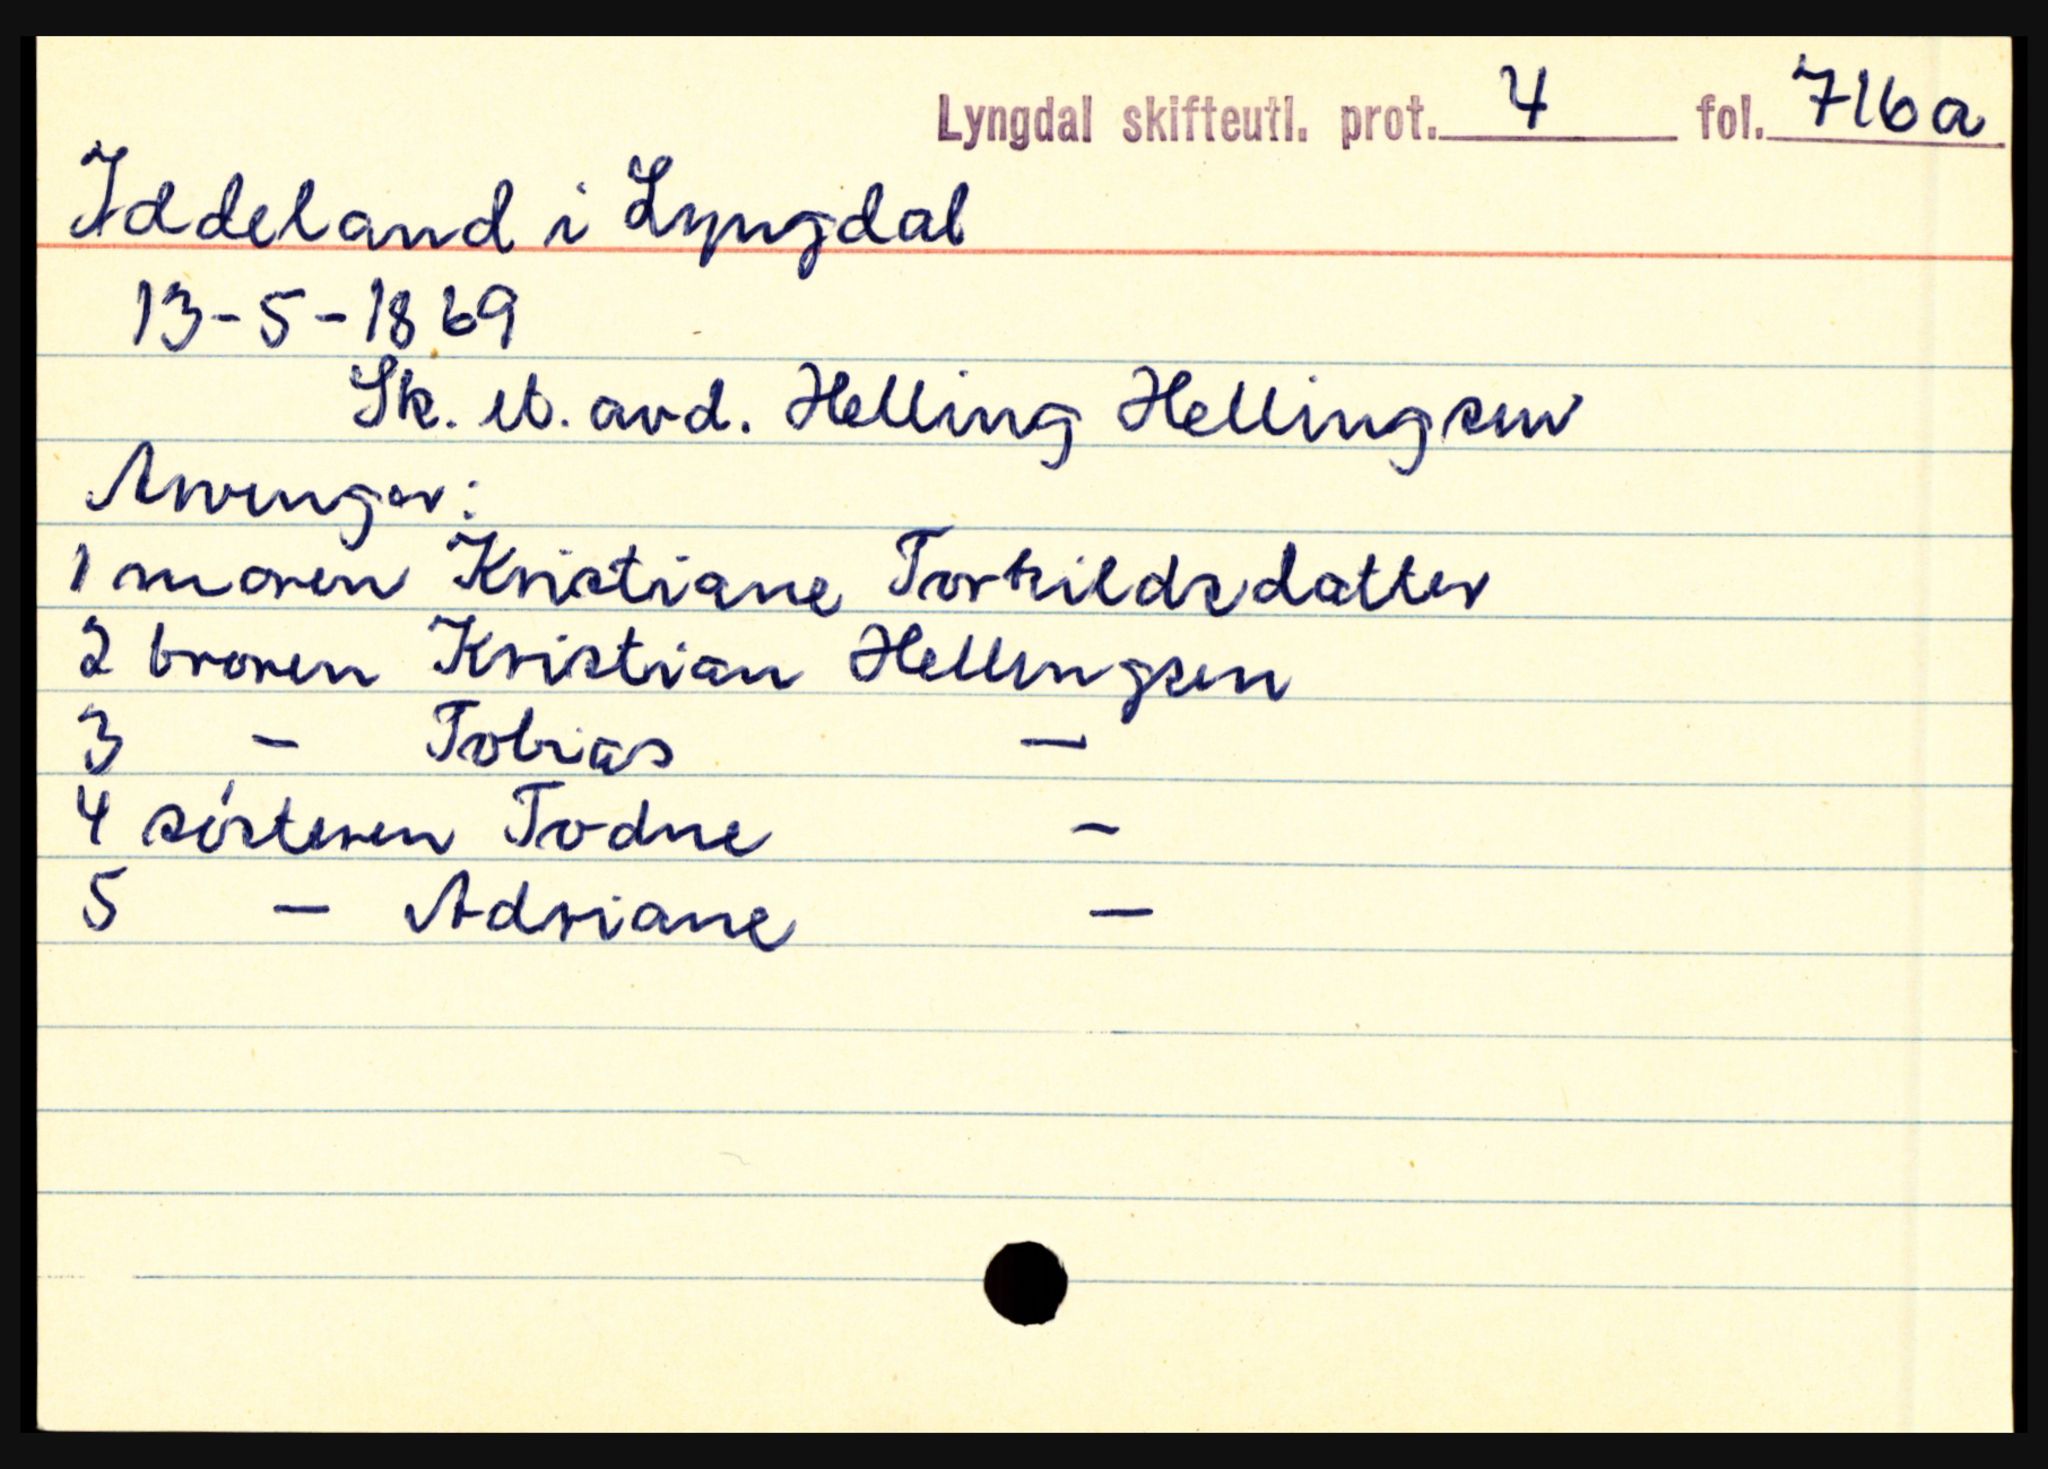 Lyngdal skifteutl. prot. 4 fol. 716a
Iddeland i Lyngdal
13-5-1869
Sk. et. avd. Helling Hellingsen
Arvinger:
1 moren Kristiane Torkildsdatter
2 broren Kristian Hellingsen
3 - Tobias -
4 søsteren Todne -
5 - Adriane -